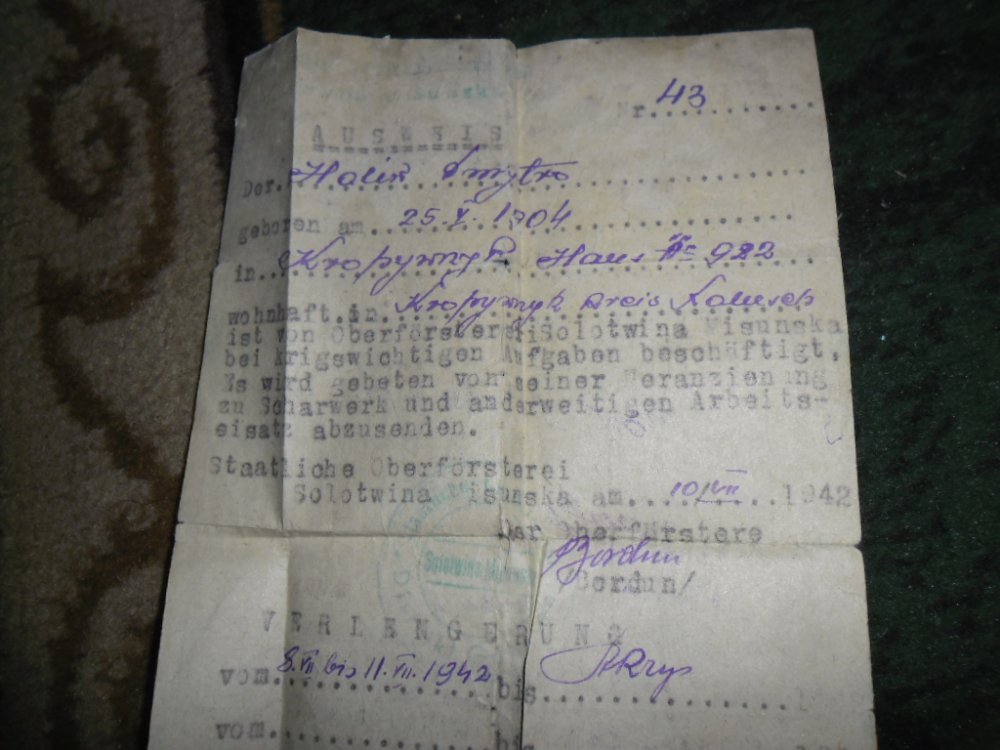 Nr. 43
AUSWEIS
Der. Halin Dmytro
geboren am 25.V.1904
in Kropywnyk Haus № 922
wohnhaft in Kropywnyk Kreis Kalusch
ist von Oberförsterei Solotwina Misunska
bei krigswichtigen Aufgaben beschäftigt,
Es wird gebeten von seiner Heranziehung
zu Scharwerk und anderweitigen Arbeits-
eisatz abzusenden.
Staatliche Oberförsterei
Solotwina Misunska am 10/VII 1942
Der Oberfürstere
Bordun
/Bordun/
VERLENGERUNG
vom 8.VII bis 11.VII.1942 bis
vom bis